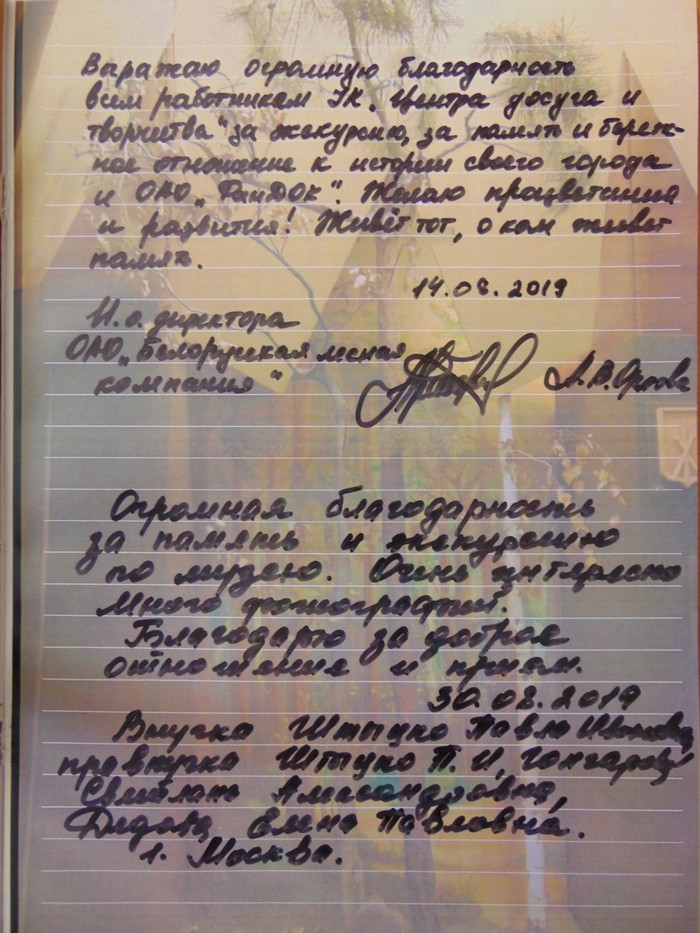 Выражаю огромную благодарность
всем работникам УК "Центра досуга и
творчества" за экскурсию, за память и береж-
ное отношение к истории своего города
и ОАО "ФанДОК". Желаю процветания
и развития! Живёт тот, о ком живет
память.
14.08.2019
И.о. директора
ОАО "Белорусская лесная
компания"
А.В. Орлова
Огромная благодарность
за память и экскурсию
по музею. Очень интересно
много фотографий.
Благодарю за доброе
отношение и прием.
30.08.2019
Внучка Штыцко Павла Ивановича
правнучка Штыцко П.И, Гончарова
Светлана Александровна,
Дидова Елена Павловна.
г. Москва.